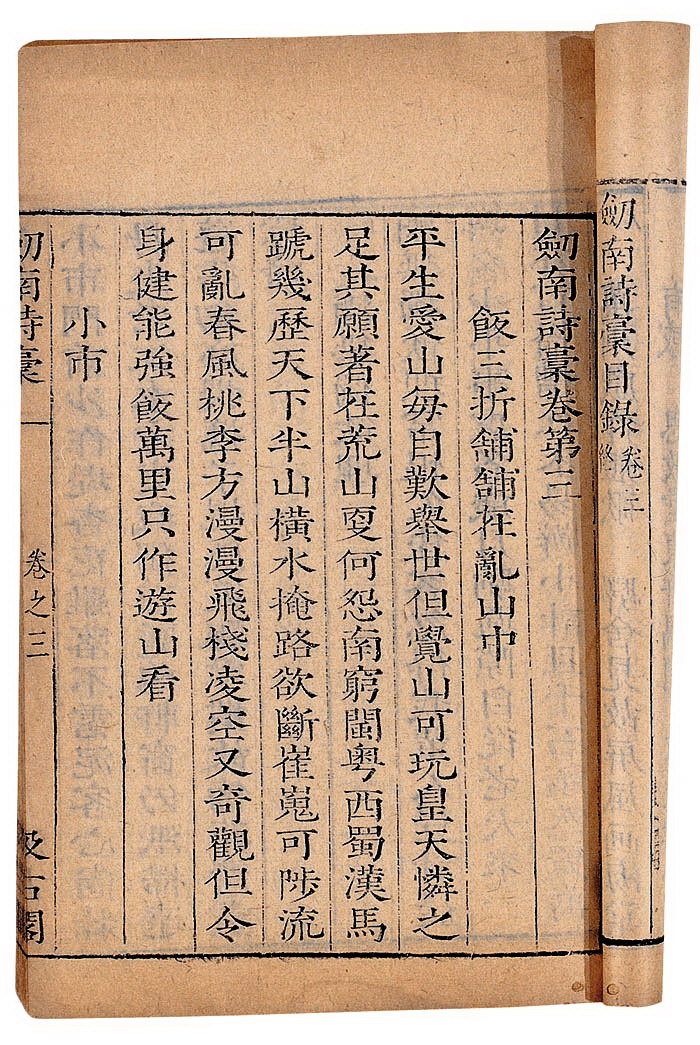 劎南詩稾目錄卷三終
劎南詩稾卷第三
飯三折舖舖在亂山中
平生愛山每自歎舉世但覺山可玩皇天憐之
足其願著在荒山更何怨南窮閩粤西蜀漢馬
蹏幾歷天下半山橫水掩路欲斷崔嵬可陟流
可亂春風桃李方漫漫飛棧凌空又奇觀但令
身健能強飯萬里只作遊山看
小市
劎南詩稾 卷之三 汲古閣